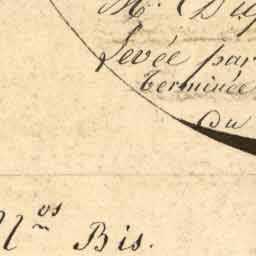 M. Dif
Levée par
terminée
du
Nos Bis.